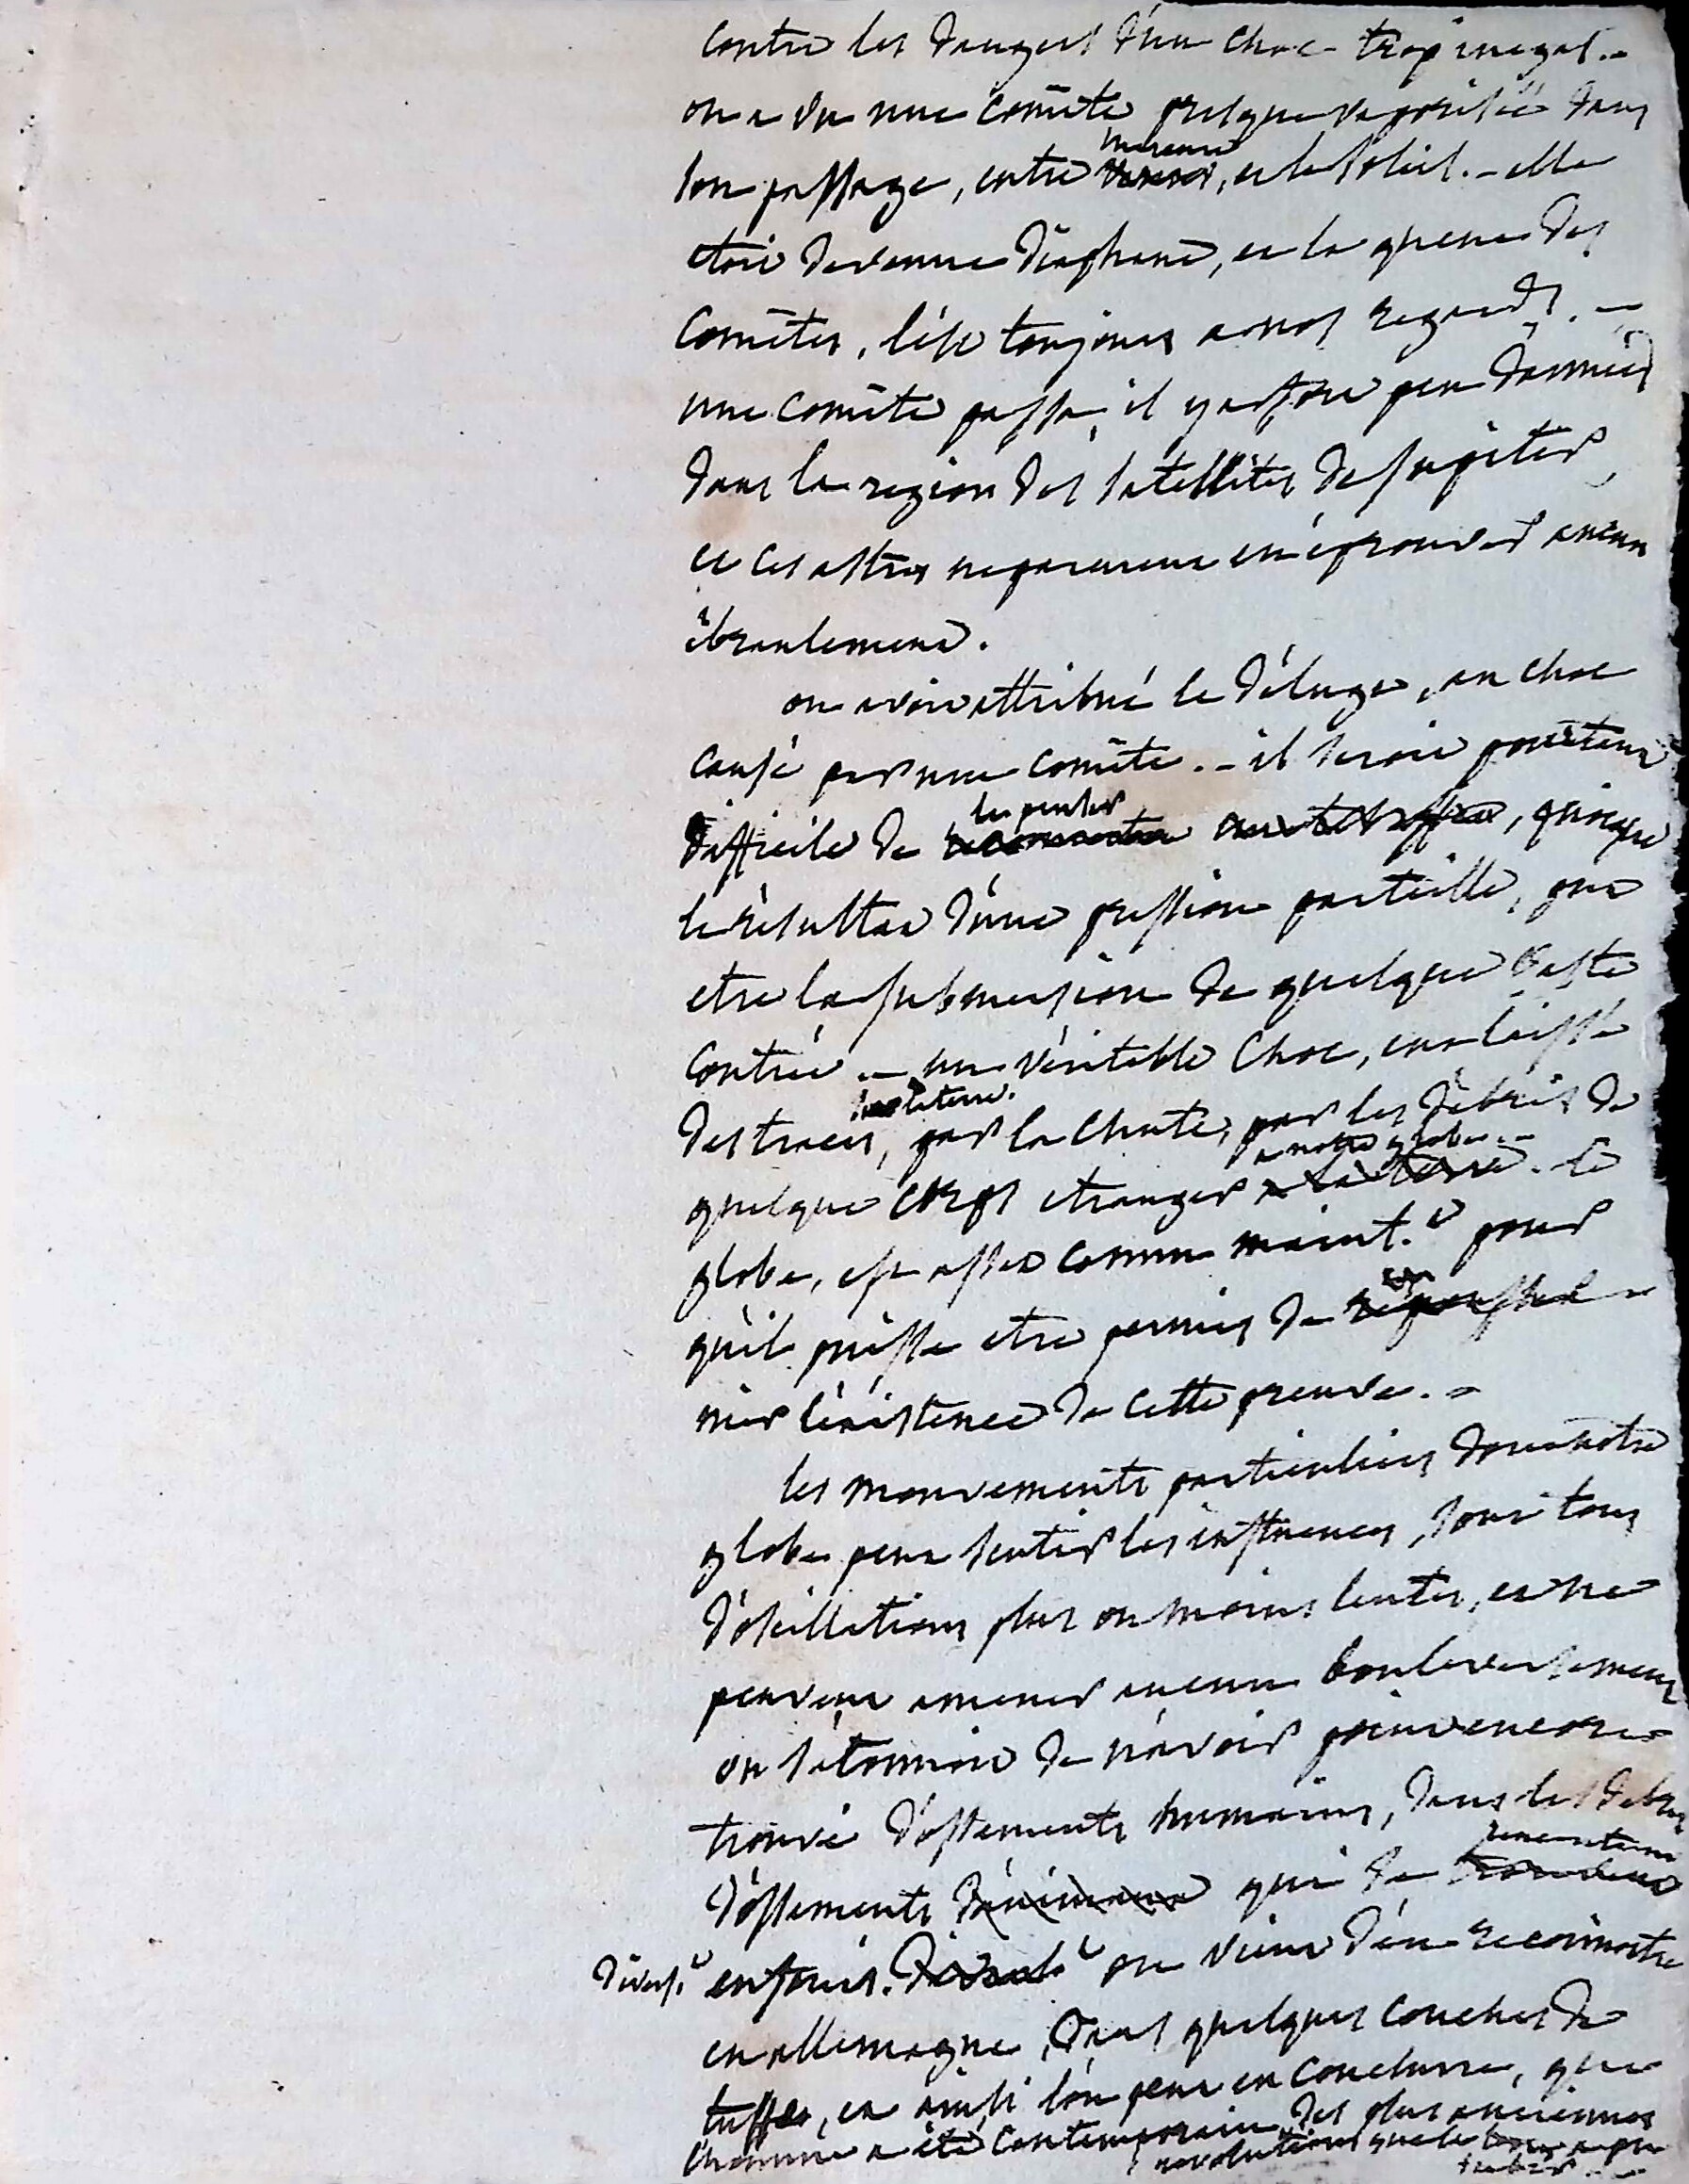 contre les dangers d'un choc trop inegal. -
on a vu une comête presque vaporisée dans
son passage, entre mercure, et le soleil. - elle
etoit devenue diaphane, et la queue des
comêtes, l'est toujours a nos regards. -
une comête passa, il y a fort peu d'années
dans la region des satellites de jupiter,
et ces astres ne parurent en éprouver aucun
ébranlement.
on avoit attribué le déluge, au choc
causé par une comête. - il seroit pourtant
difficile de le penser, quoique
le résultat d'une pression partielle, put
etre la submersion de quelque vaste
contrée. - un véritable choc, eut laissé
des traces, sur la terre, par la chute, par les débris de
quelque corps etranger a notre globe. - le
globe, est assez connu maint.t pour
qu'il puisse etre permis de
nier l'existence de cette preuve. -
les mouvements particuliers dont notre
globe peut sentir les influences, sont tous
d'oscillations plus ou moins lentes, et ne
peuvent amener aucun bouleversement
on s'étonnoit de n'avoir point encore
trouvé d'ossements humains, dans les debris
d'ossements qui se rencontrent
enfouis. on vient d'en reconnoitre
en allemagne, dans quelques couches de
tuffes, et ainsi l'on peut en conclurre, que
l'homme a été contemporain des plus anciennes
revolutions que le